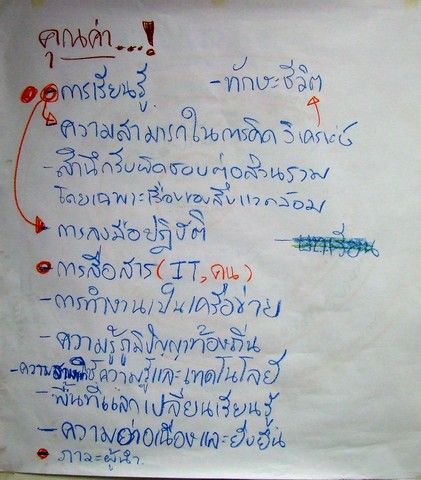 คุณค่า....!
- การเรียนรู้ - ทักษะชีวิต
ความสามารถในการคิดวิเคราะห์
- สำนึกรับผิดชอบต่อส่วนรวม
โดยเฉพาะเรื่องของสิ่งแวดล้อม
- การลงมือปฏิบัติ
- การสื่อสาร (IT, คน)
- การทำงานเป็นเครือข่าย
- ความรู้ภูมิปัญญาท้องถิ่น
- ความ ความรู้และเทคโนโลยี
- พื้นที่แลกเปลี่ยนเรียนรู้
- ความต่อเนื่องและยั่งยืน
- ภาวะผู้นำ.